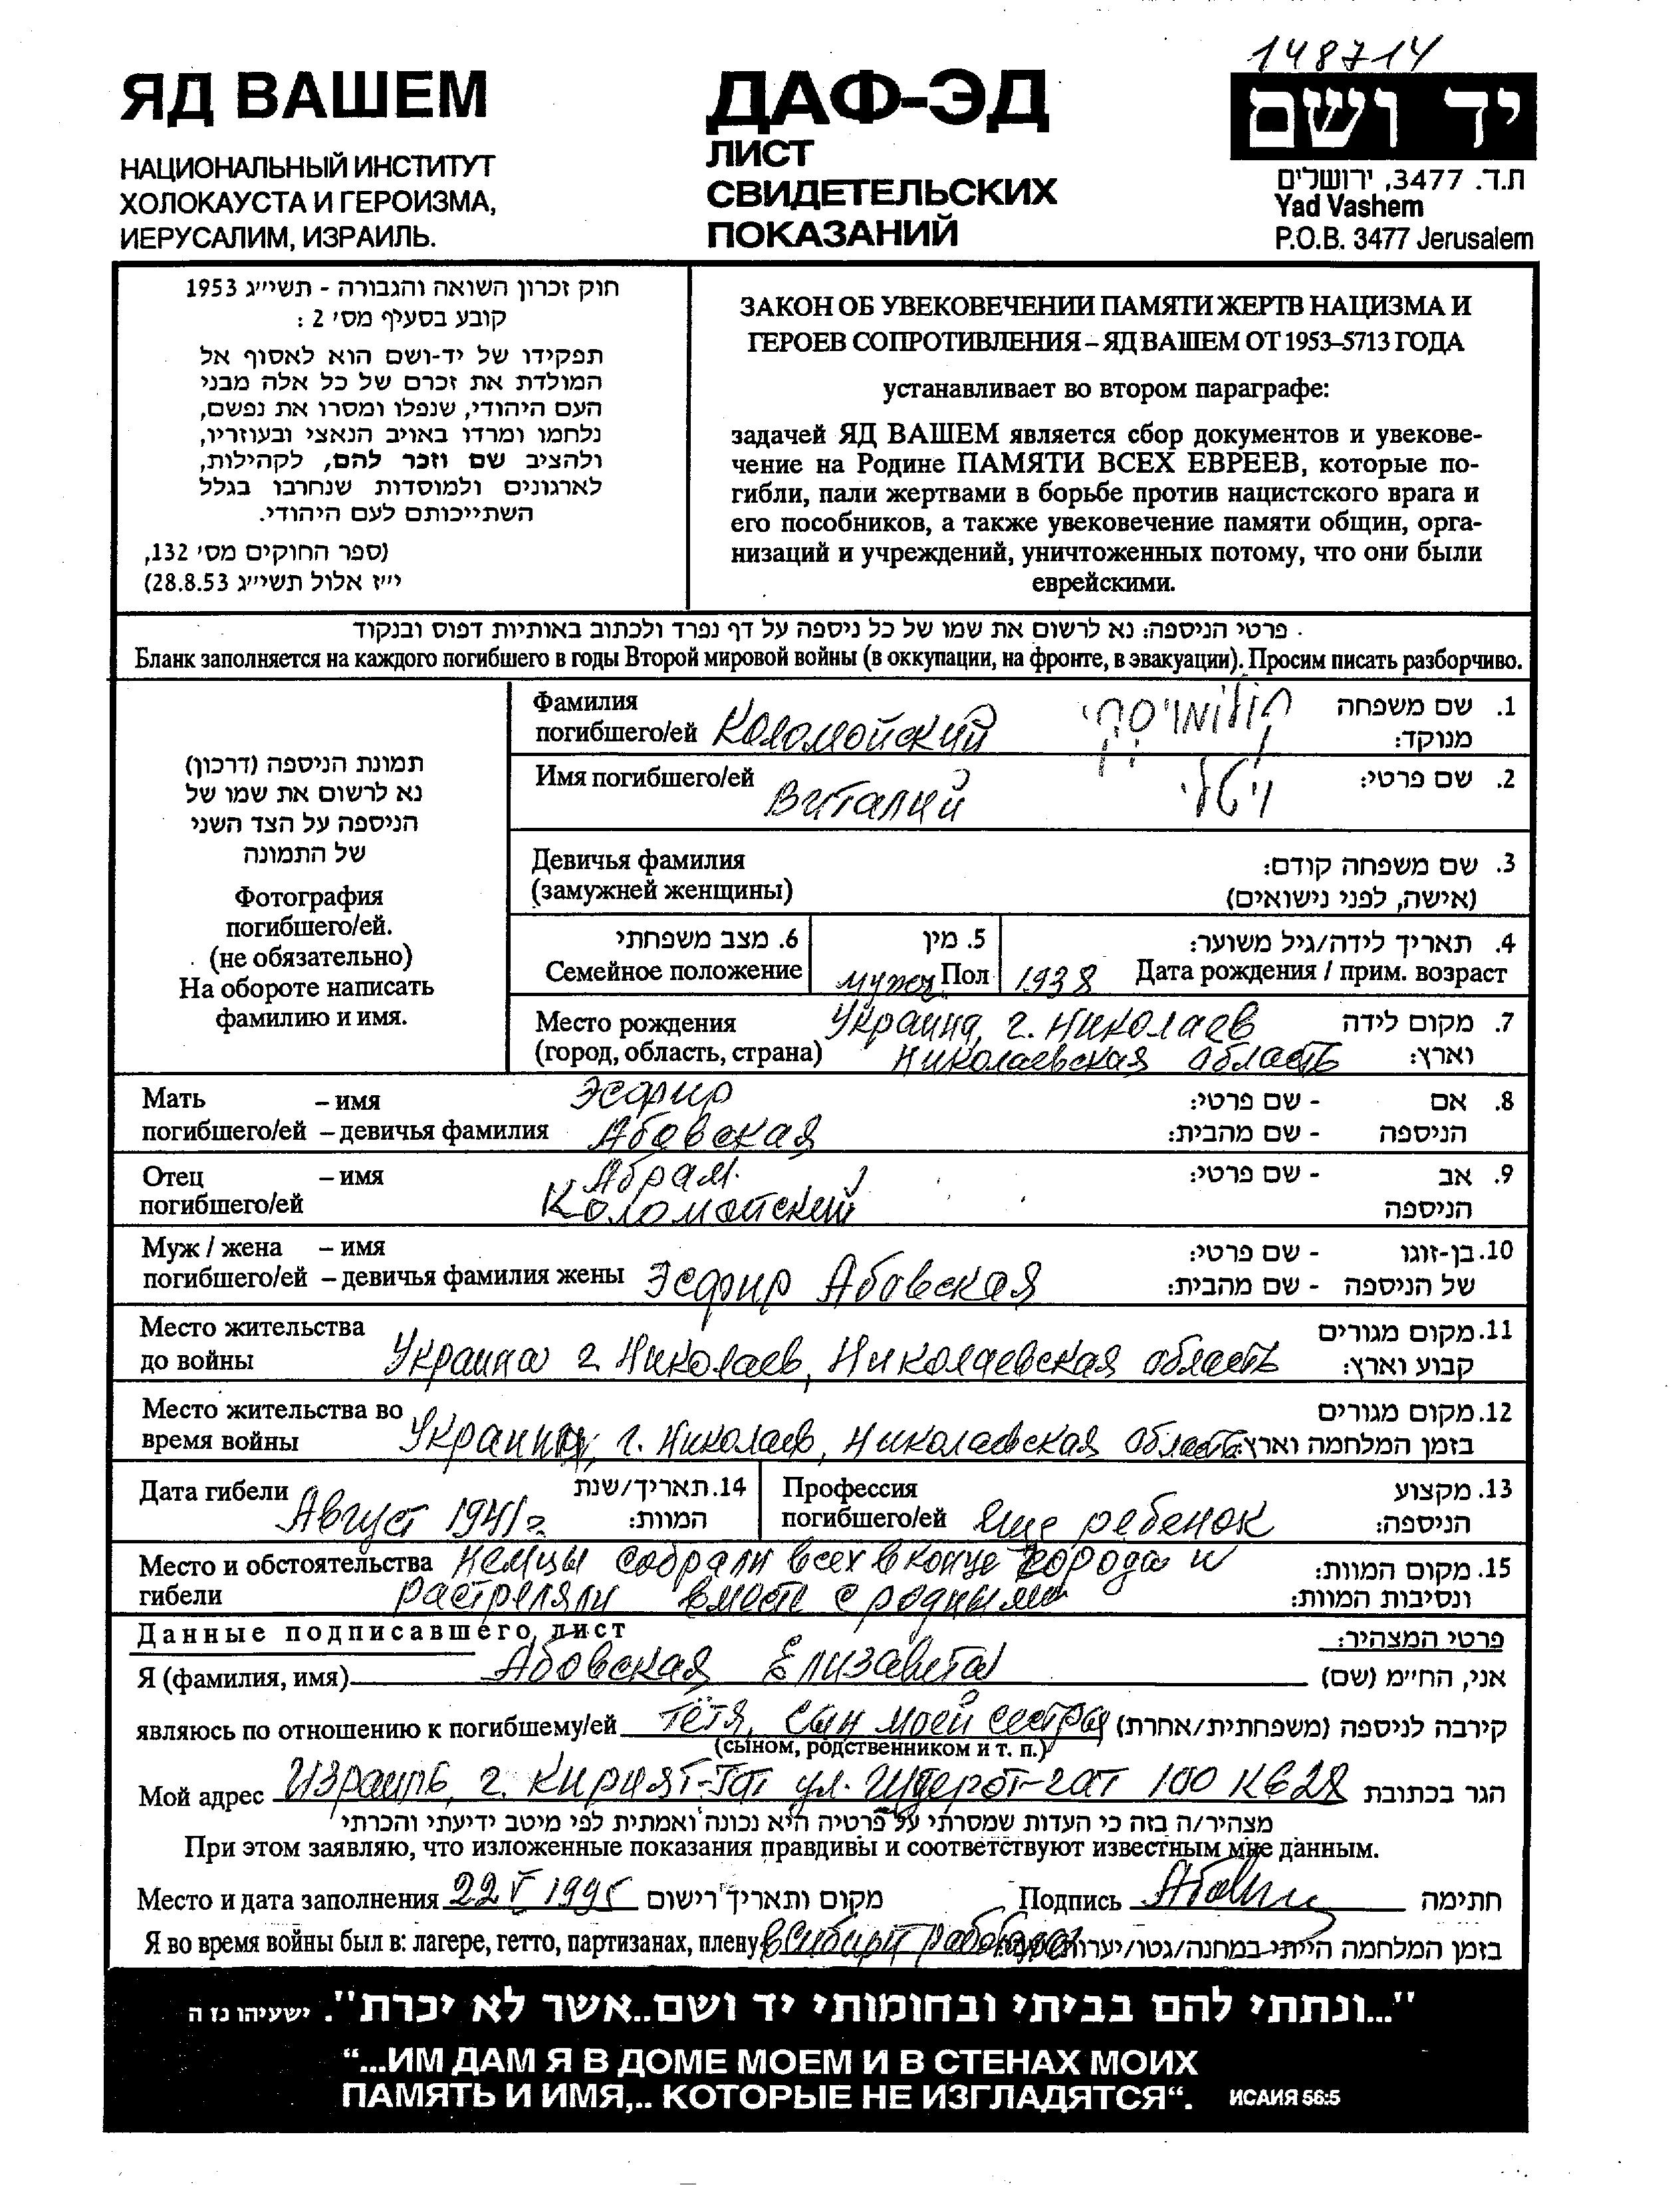 148714
ЯД ВАШЕМ
НАЦИОНАЛЬНЫЙ ИНСТИТУТ
ХОЛОКАУСТА И ГЕРОИЗМА,
ИЕРУСАЛИМ, ИЗРАИЛЬ.
ДАФ-ЭД
ЛИСТ
СВИДЕТЕЛЬСКИХ
ПОКАЗАНИЙ
יד ושם
ת.ד. 3477, ירושלים
Yad Vashem
P.O.B. 3477 Jerusalem
חוק זכרון השואה והגבורה - תשי״ג 1953
קובע בסעיף מס׳ 2 :
תפקידו של יד-ושם הוא לאסוף אל
המולדת את זכרם של כל אלה מבני
העם היהודי, שנפלו ומסרו את נפשם,
נלחמו ומרדו באויב הנאצי ובעוזריו,
ולהציב שם וזכר להם, לקהילות,
לארגונים ולמוסדות שנחרבו בגלל
השתייכותם לעם היהודי.
(ספר החוקים מס׳ 132,
י״ז אלול תשי״ג 28.8.53)
ЗАКОН ОБ УВЕКОВЕЧЕНИИ ПАМЯТИ ЖЕРТВ НАЦИЗМА И
ГЕРОЕВ СОПРОТИВЛЕНИЯ – ЯД ВАШЕМ ОТ 1953–5713 ГОДА
устанавливает во втором параграфе:
задачей ЯД ВАШЕМ является сбор документов и увекове-
чение на Родине ПАМЯТИ ВСЕХ ЕВРЕЕВ, которые по-
гибли, пали жертвами в борьбе против нацистского врага и
его пособников, а также увековечение памяти общин, орга-
низаций и учреждений, уничтоженных потому, что они были
еврейскими.
פרטי הניספה: נא לרשום את שמו של כל ניספה על דף נפרד ולכתוב באותיות דפוס ובנקוד
Бланк заполняется на каждого погибшего в годы Второй мировой войны (в оккупации, на фронте, в эвакуации). Просим писать разборчиво.
תמונת הניספה (דרכון)
נא לרשום את שמו של
הניספה על הצד השני
של התמונה
Фотография
погибшего/ей.
(не обязательно)
На обороте написать
фамилию и имя.
Фамилия
погибшего/ей Коломойский קולומויסקי 1. שם משפחה
מנוקד:
Имя погибшего/ей Виталий ויטלי 2. שם פרטי:
Девичья фамилия 3. שם משפחה קודם:
(замужней женщины) (אישה, לפני נישואים)
6. מצב משפחתי 5. מין 4. תאריך לידה/גיל משוער:
Семейное положение мужч Пол 1938 Дата рождения / прим. возраст
Место рождения Украина, г. Николаев 7. מקום לידה
(город, область, страна) Николаевская область וארץ:
Мать – имя Эсфир 8. אם - שם פרטי:
погибшего/ей – девичья фамилия Абовская הניספה - שם מהבית:
Отец – имя Абрам 9. אב - שם פרטי:
погибшего/ей Коломойский הניספה
Муж / жена – имя 10. בן-זוגו - שם פרטי:
погибшего/ей – девичья фамилия жены Эсфир Абовская של הניספה - שם מהבית:
Место жительства 11. מקום מגורים
до войны Украина г. Николаев, Николаевская область קבוע וארץ:
Место жительства во 12. מקום מגורים
время войны Украина, г. Николаев, Николаевская область בזמן המלחמה וארץ:
Дата гибели Август 1941г. 14. תאריך/שנת המוות:
Профессия 13. מקצוע
погибшего/ей еще ребенок הניספה:
Место и обстоятельства немцы собрали всех в конце города и 15. מקום המוות:
гибели растреляли вместе с родными ונסיבות המוות:
Данные подписавшего лист פרטי המצהיר:
Я (фамилия, имя) Абовская Елизавета אני, הח״מ (שם)
являюсь по отношению к погибшему/ей тётя, сын моей сестры קירבה לניספה (משפחתית/אחרת)
(сыном, родственником и т. п.)
Мой адрес Израиль, г. Кирият-Гат ул. Шдерот-гат 100 кв 28 הגר בכתובת
מצהיר/ה בזה כי העדות שמסרתי על פרטיה היא נכונה ואמתית לפי מיטב ידיעתי והכרתי
При этом заявляю, что изложенные показания правдивы и соответствуют известным мне данным.
Место и дата заполнения 22 V 1995 מקום ותאריך רישום Подпись חתימה
Я во время войны был в: лагере, гетто, партизанах, плену в Сибири работала בזמן המלחמה הייתי במחנה/גטו/יערות
"...ונתתי להם בביתי ובחומותי יד ושם..אשר לא יכרת". ישעיהו נז ה
“...ИМ ДАМ Я В ДОМЕ МОЕМ И В СТЕНАХ МОИХ
ПАМЯТЬ И ИМЯ,.. КОТОРЫЕ НЕ ИЗГЛАДЯТСЯ“. ИСАИЯ 56:5